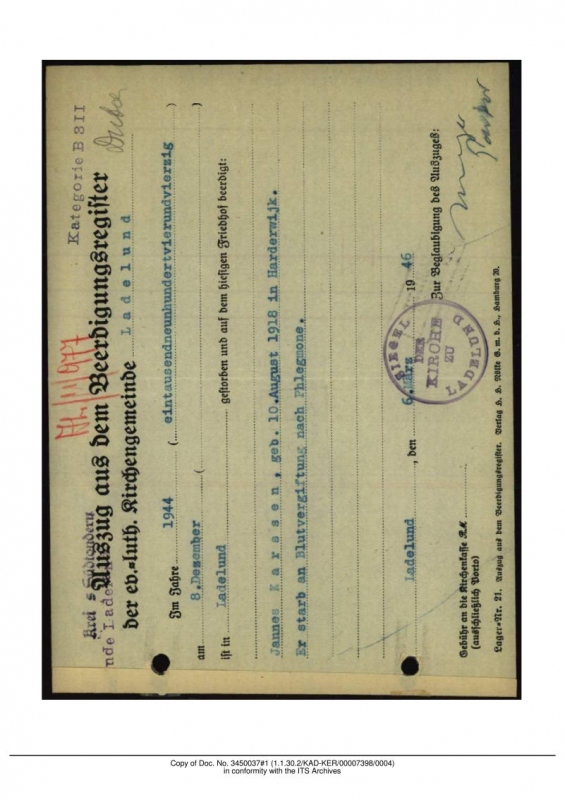 Kategorie B 2 II
Krei s Südtondern
nde Ladel
Auszug aus dem Beerdigungsregister
der ev.=luth. Kirchengemeinde Ladelund
Im Jahre 1944 ( eintausendneunhundertvierundvierzig )
am 8.Dezember ( )
ist in Ladelund gestorben und auf dem hiesigen Friedhof beerdigt:
Jannes Karssen, geb. 10.August 1918 in Harderwijk.
Er starb an Blutvergiftung nach Phlegmone.
Ladelund, den 6.März 1946
SIEGEL DER KIRCHE ZU LADELUND
Zur Beglaubigung des Auszuges:
Pastor
Gebühr an die Kirchenkasse RM
(ausschließlich Porto)
Lager=Nr. 21. Auszug aus dem Beerdigungsregister. Verlag H. H. Nölke G. m. b. H., Hamburg
Copy of Doc. No. 3450037#1 (1.1.30.2/KAD-KER/00007398/0004)
in conformity with the ITS Archives